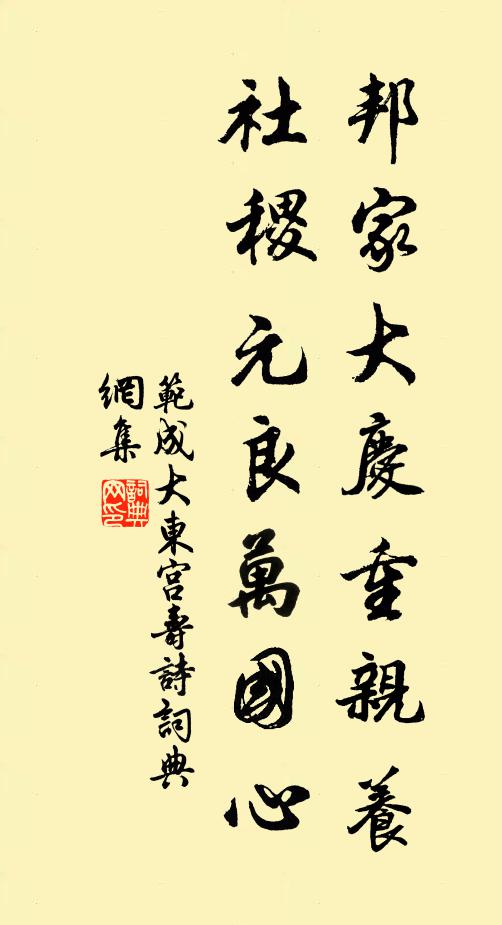 邦家大慶重親養
社稷元良萬國心
範成大東宮壽詩詞典
網集
詞典
网印